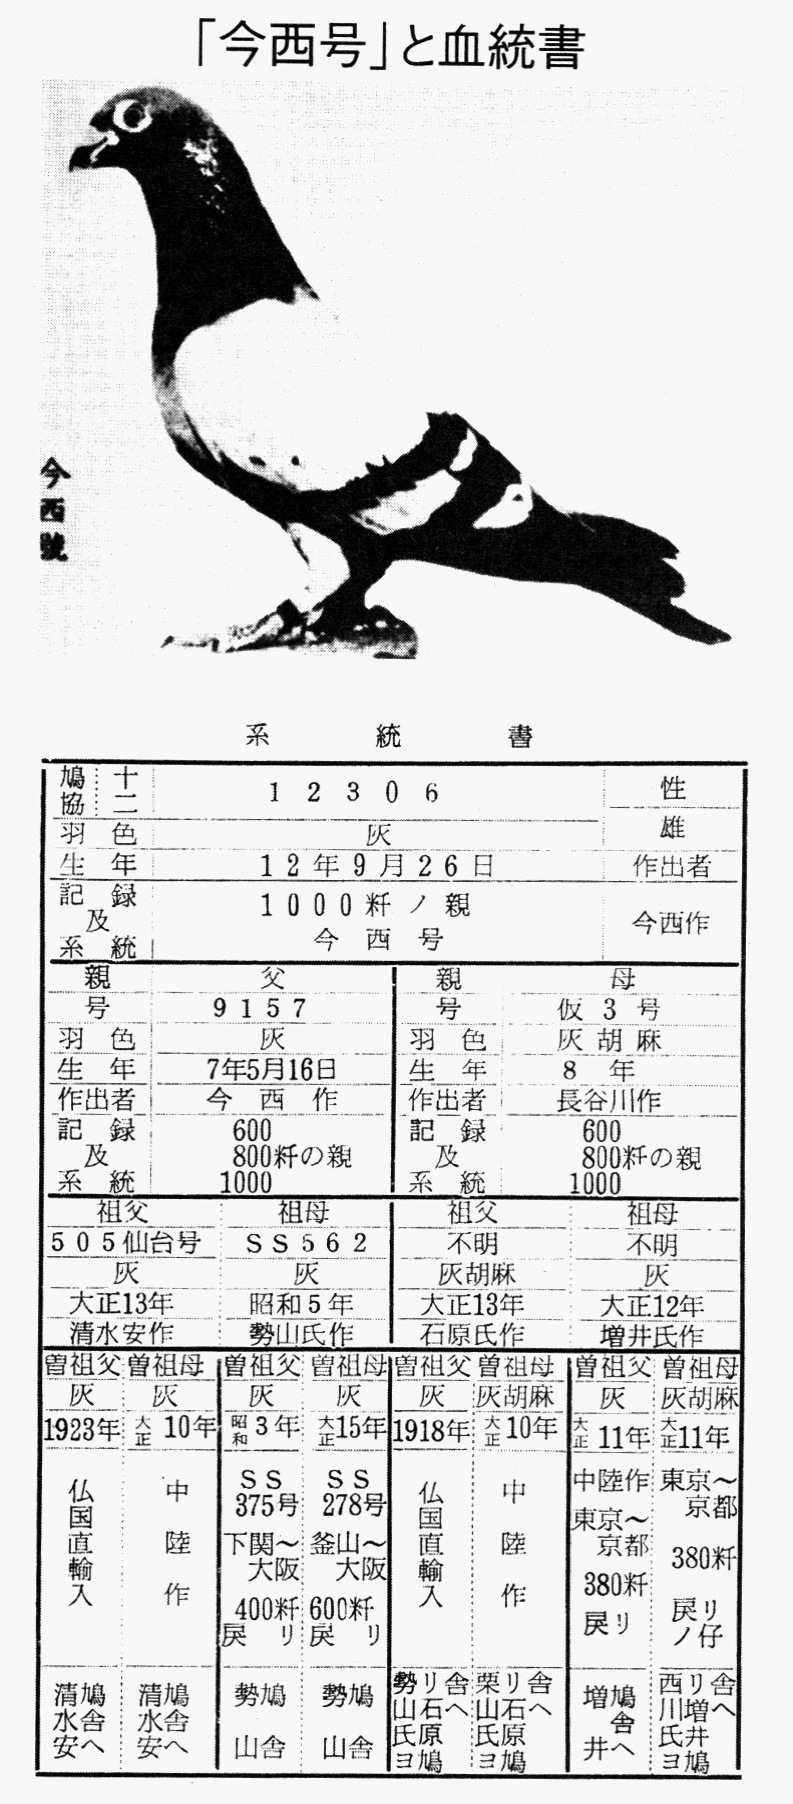 「今西号」と血統書
今西號
系統書
鳩協 十二 12306 性
雄
羽色 灰
生年 12年9月26日 作出者
記録及系統 1000粁ノ親 今西作
今西号
親 父 親 母
号 9157 号 仮3号
羽色 灰 羽色 灰胡麻
生年 7年5月16日 生年 8年
作出者 今西作 作出者 長谷川作
記録 600 記録 600
及 800粁の親 及 800粁の親
系統 1000 系統 1000
祖父 祖母 祖父 祖母
505仙台号 SS562 不明 不明
灰 灰 灰胡麻 灰
大正13年 昭和5年 大正13年 大正12年
清水安作 勢山氏作 石原氏作 増井氏作
曽祖父 曽祖母 曽祖父 曽祖母 曽祖父 曽祖母 曽祖父 曽祖母
灰 灰 灰 灰 灰 灰胡麻 灰 灰胡麻
1923年 大正10年 昭和3年 大正15年 1918年 大正10年 大正11年 大正11年
仏国直輸入
中陸作
SS
375号
下関〜
大阪
400粁
戻リ
SS
278号
釜山〜
大阪
600粁
戻リ
仏国直輸入
中陸作
中陸作
東京〜
京都
380粁
戻リ
東京〜
京都
380粁
戻リ
ノ仔
清水安
鳩舎へ
清水安
鳩舎へ
勢山
鳩舎
勢山
鳩舎
勢山氏ヨ
リ石原鳩
舎へ
栗山氏ヨ
リ石原鳩
舎へ
増井
鳩舎へ
西川氏ヨ
リ増井鳩
舎へ